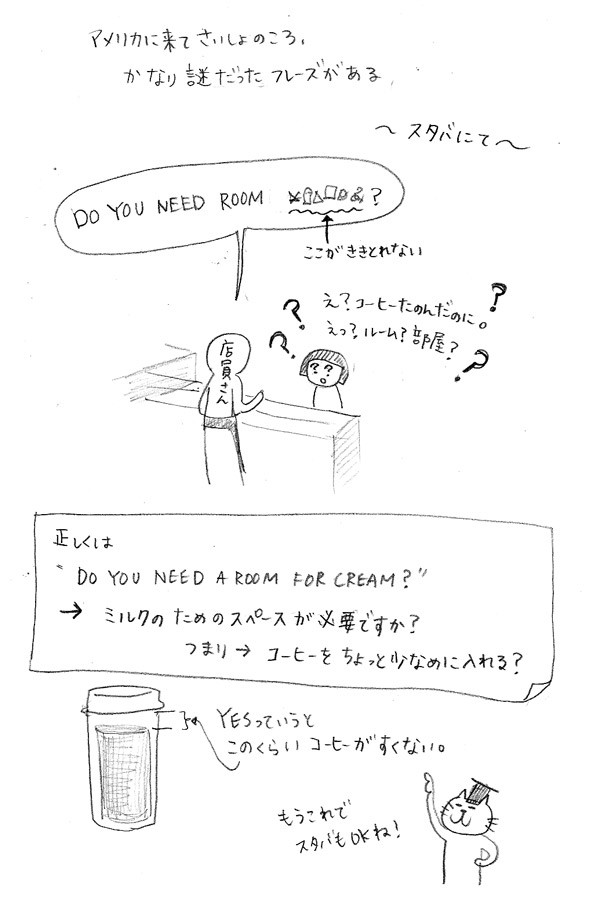 アメリカに来てさいしょのころ、
かなり謎だったフレーズがある
～スタバにて～
DO YOU NEED ROOM ?
ここがききとれない
え?コーヒーたのんだのに。
えっ?ルーム?部屋?
? ? ? ?
? ?
店員さん
正しくは
"DO YOU NEED A ROOM FOR CREAM?"
→ ミルクのためのスペースが必要ですか?
つまり→ コーヒーをちょっと少なめに入れる?
YESっていうと
このくらいコーヒーがすくない。
もうこれで
スタバもOKね!